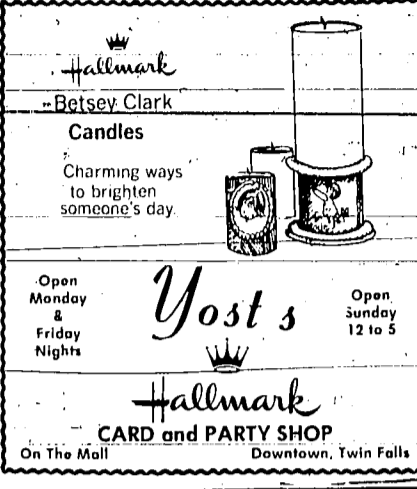 Hallmark
Betsey Clark
Candles
Charming ways
to brighten
someone's day.
Open
Monday
&
Friday
Nights
Yost s
Open
Sunday
12 to 5
Hallmark
CARD and PARTY SHOP
On The Mall
Downtown, Twin Falls